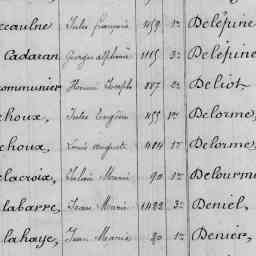 ecaulne Jules françois 459 1re Delépine
Cadaran Georges alphonse 1115 3e Delépine
communier Honoré Joseph 887 2e Deliot
choux, Jules Eugène 455 1re Delorme,
choux, Louis auguste 414 1re Delorme,
lacroix, Julien Marie 90 1re Delourme
labarre, Jean Marie 1422 3e Deniel,
lahaye, Jean Marie 80 1re Denier,